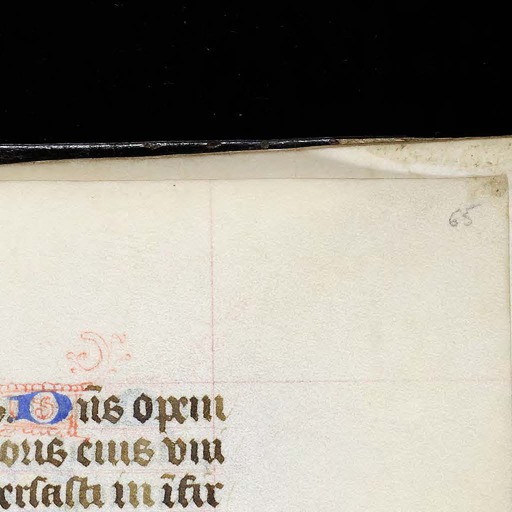 65
Dn̄s opem
oris eius vni
ersasti in ĩfir